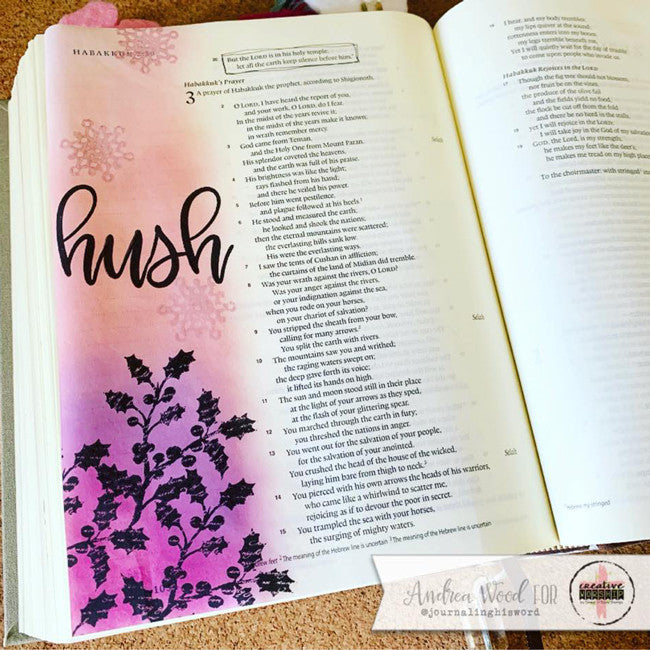 HABAKKUK
20 But the LORD is in his holy temple;
let all the earth keep silence before him."
Habakkuk's Prayer
3 A prayer of Habakkuk the prophet, according to Shigionoth.
2 O LORD, I have heard the report of you,
and your work, O LORD, do I fear.
In the midst of the years revive it;
in the midst of the years make it known;
in wrath remember mercy.
3 God came from Teman,
and the Holy One from Mount Paran. Selah
His splendor covered the heavens,
and the earth was full of his praise.
4 His brightness was like the light;
rays flashed from his hand;
and there he veiled his power.
5 Before him went pestilence,
and plague followed at his heels.
6 He stood and measured the earth;
he looked and shook the nations;
then the eternal mountains were scattered;
the everlasting hills sank low.
His were the everlasting ways.
7 I saw the tents of Cushan in affliction;
the curtains of the land of Midian did tremble.
8 Was your wrath against the rivers, O LORD?
Was your anger against the rivers,
or your indignation against the sea,
when you rode on your horses,
on your chariot of salvation?
9 You stripped the sheath from your bow,
calling for many arrows.2 Selah
You split the earth with rivers.
10 The mountains saw you and writhed;
the raging waters swept on;
the deep gave forth its voice;
it lifted its hands on high.
11 The sun and moon stood still in their place
at the light of your arrows as they sped,
at the flash of your glittering spear.
12 You marched through the earth in fury;
you threshed the nations in anger.
13 You went out for the salvation of your people,
for the salvation of your anointed.
You crushed the head of the house of the wicked,
laying him bare from thigh to neck.3 Selah
14 You pierced with his own arrows the heads of his warriors,
who came like a whirlwind to scatter me,
rejoicing as if to devour the poor in secret.
15 You trampled the sea with your horses,
the surging of mighty waters.
feet 2 The meaning of the Hebrew line is uncertain 3 The meaning of the Hebrew line is uncertain
hush
16 I hear, and my body trembles;
my lips quiver at the sound;
rottenness enters into my bones;
my legs tremble beneath me.
Yet I will quietly wait for the day of trouble
to come upon people who invade us.
Habakkuk Rejoices in the LORD
17 Though the fig tree should not blossom,
nor fruit be on the vines,
the produce of the olive fail
and the fields yield no food,
the flock be cut off from the fold
and there be no herd in the stalls,
18 yet I will rejoice in the LORD;
I will take joy in the God of my salvation
19 GOD, the Lord, is my strength;
he makes my feet like the deer's;
he makes me tread on my high places
To the choirmaster: with stringed
Andrea Wood FOR
@journalinghisword
creative
WORSHIP